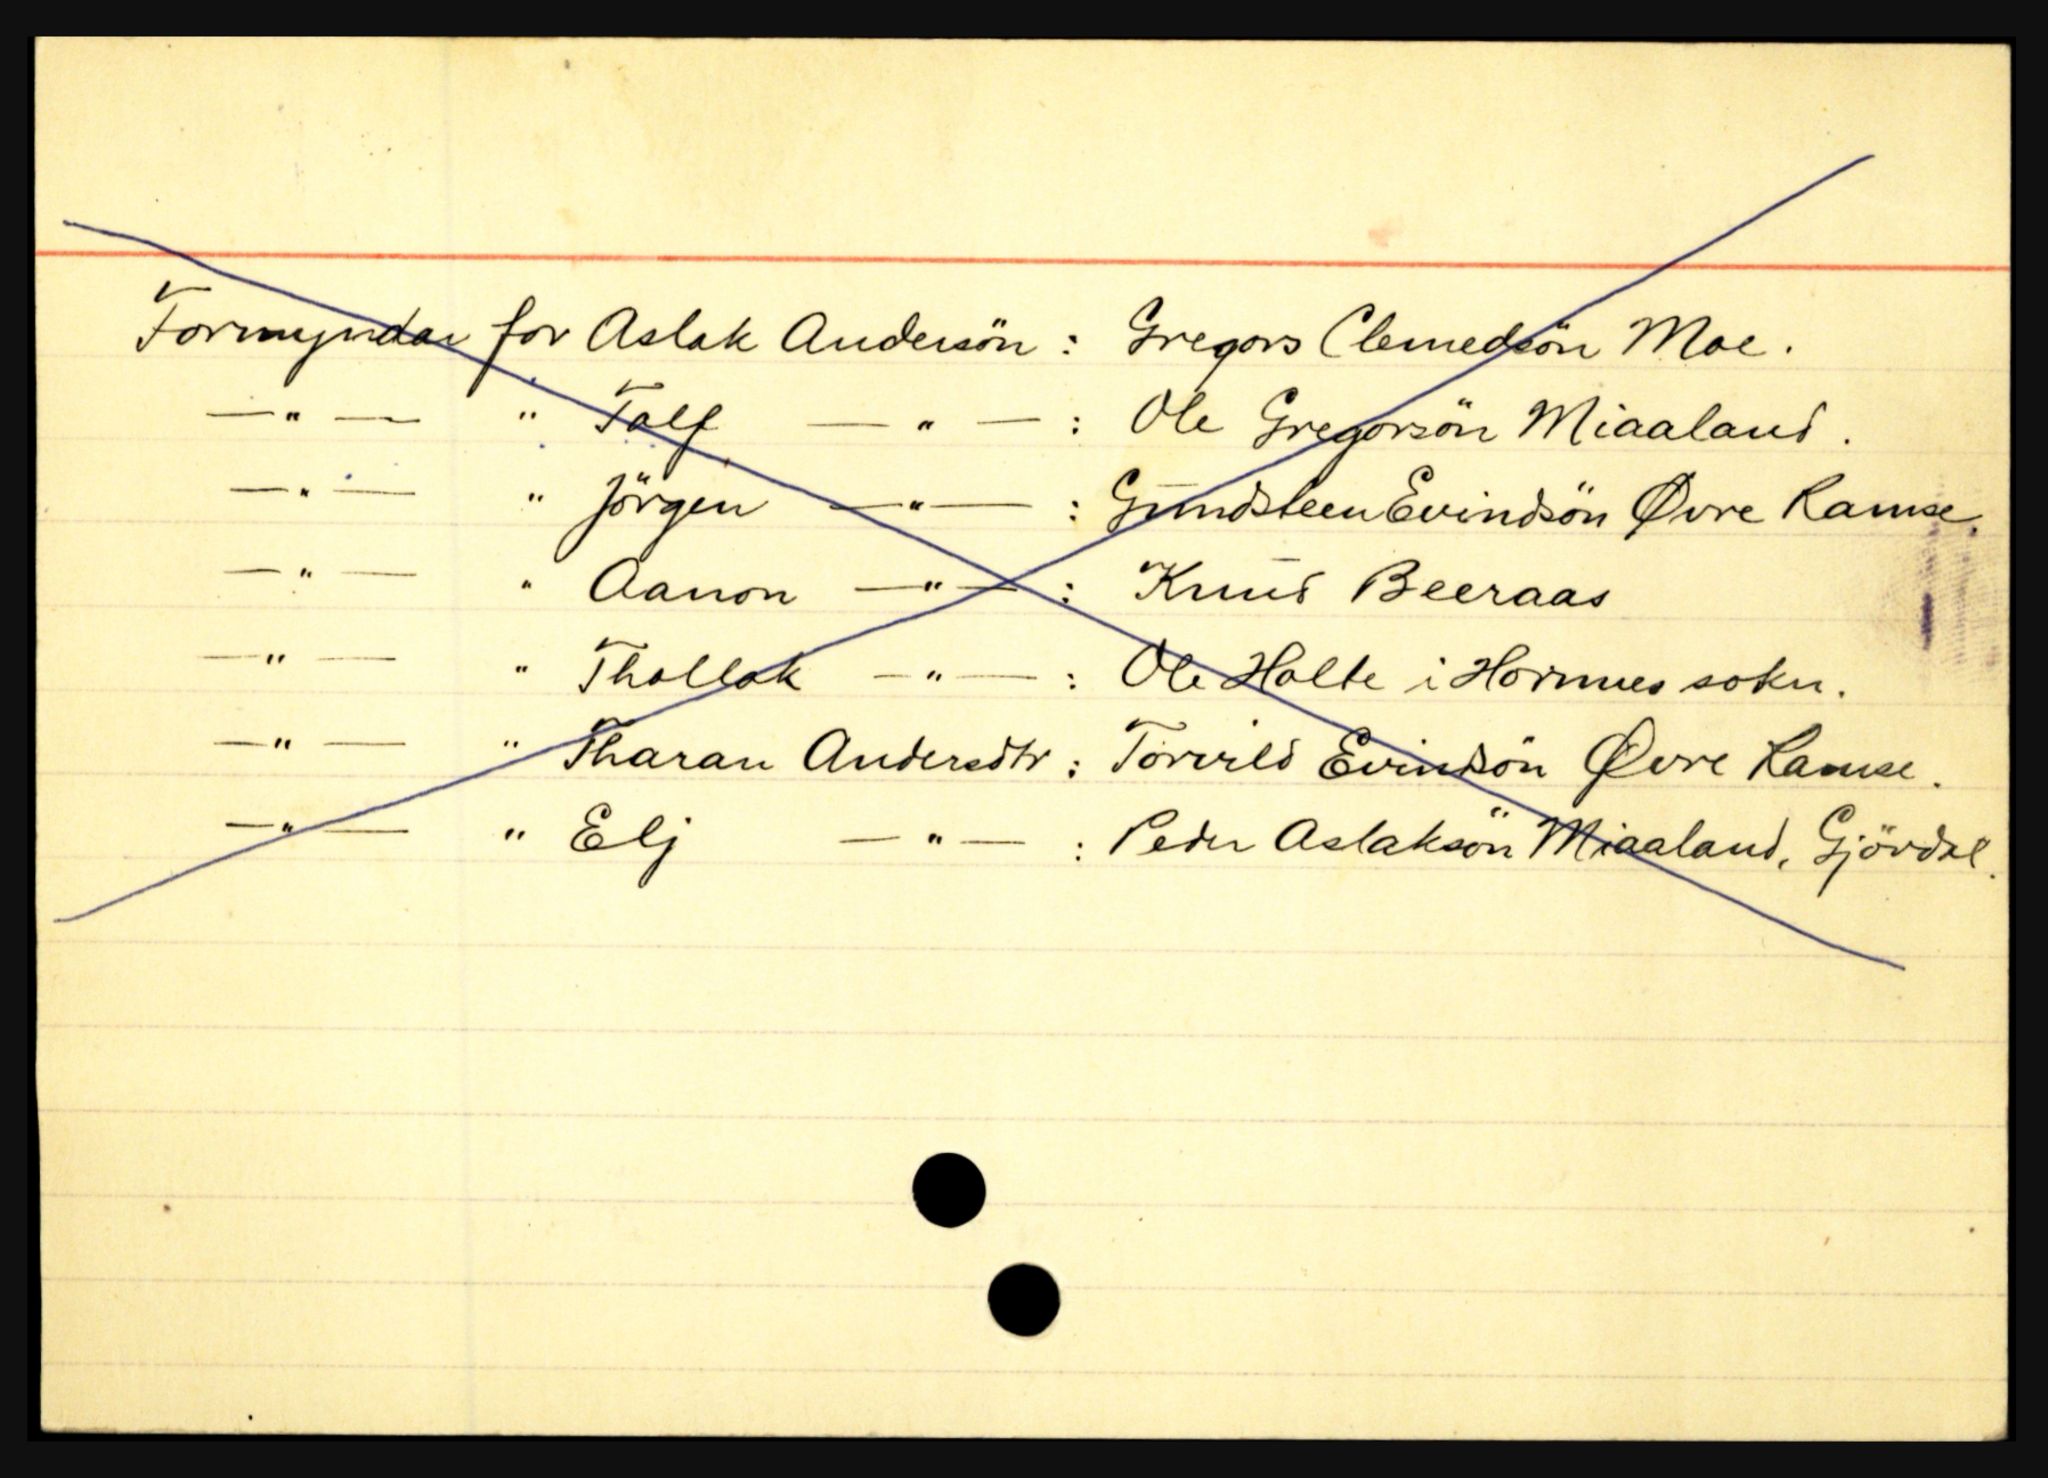 Formyndar for Aslak Andersön : Gregors Clemedsön Moe.
— " — " Talf — " — : Ole Gregorsön Miaaland.
— " — " Jörgen — " — : Gundsteen Evindsön Øvre Ramse.
— " — " Aanon — " — : Knud Beeraas
— " — " Thollak — " — : Ole Holte i Hornnes sokn.
— " — " Tharan Andersdtr : Torvild Evindsön Øvre Ramse.
— " — " Elj — " — : Peder Aslaksön Miaaland, Gjövdal.